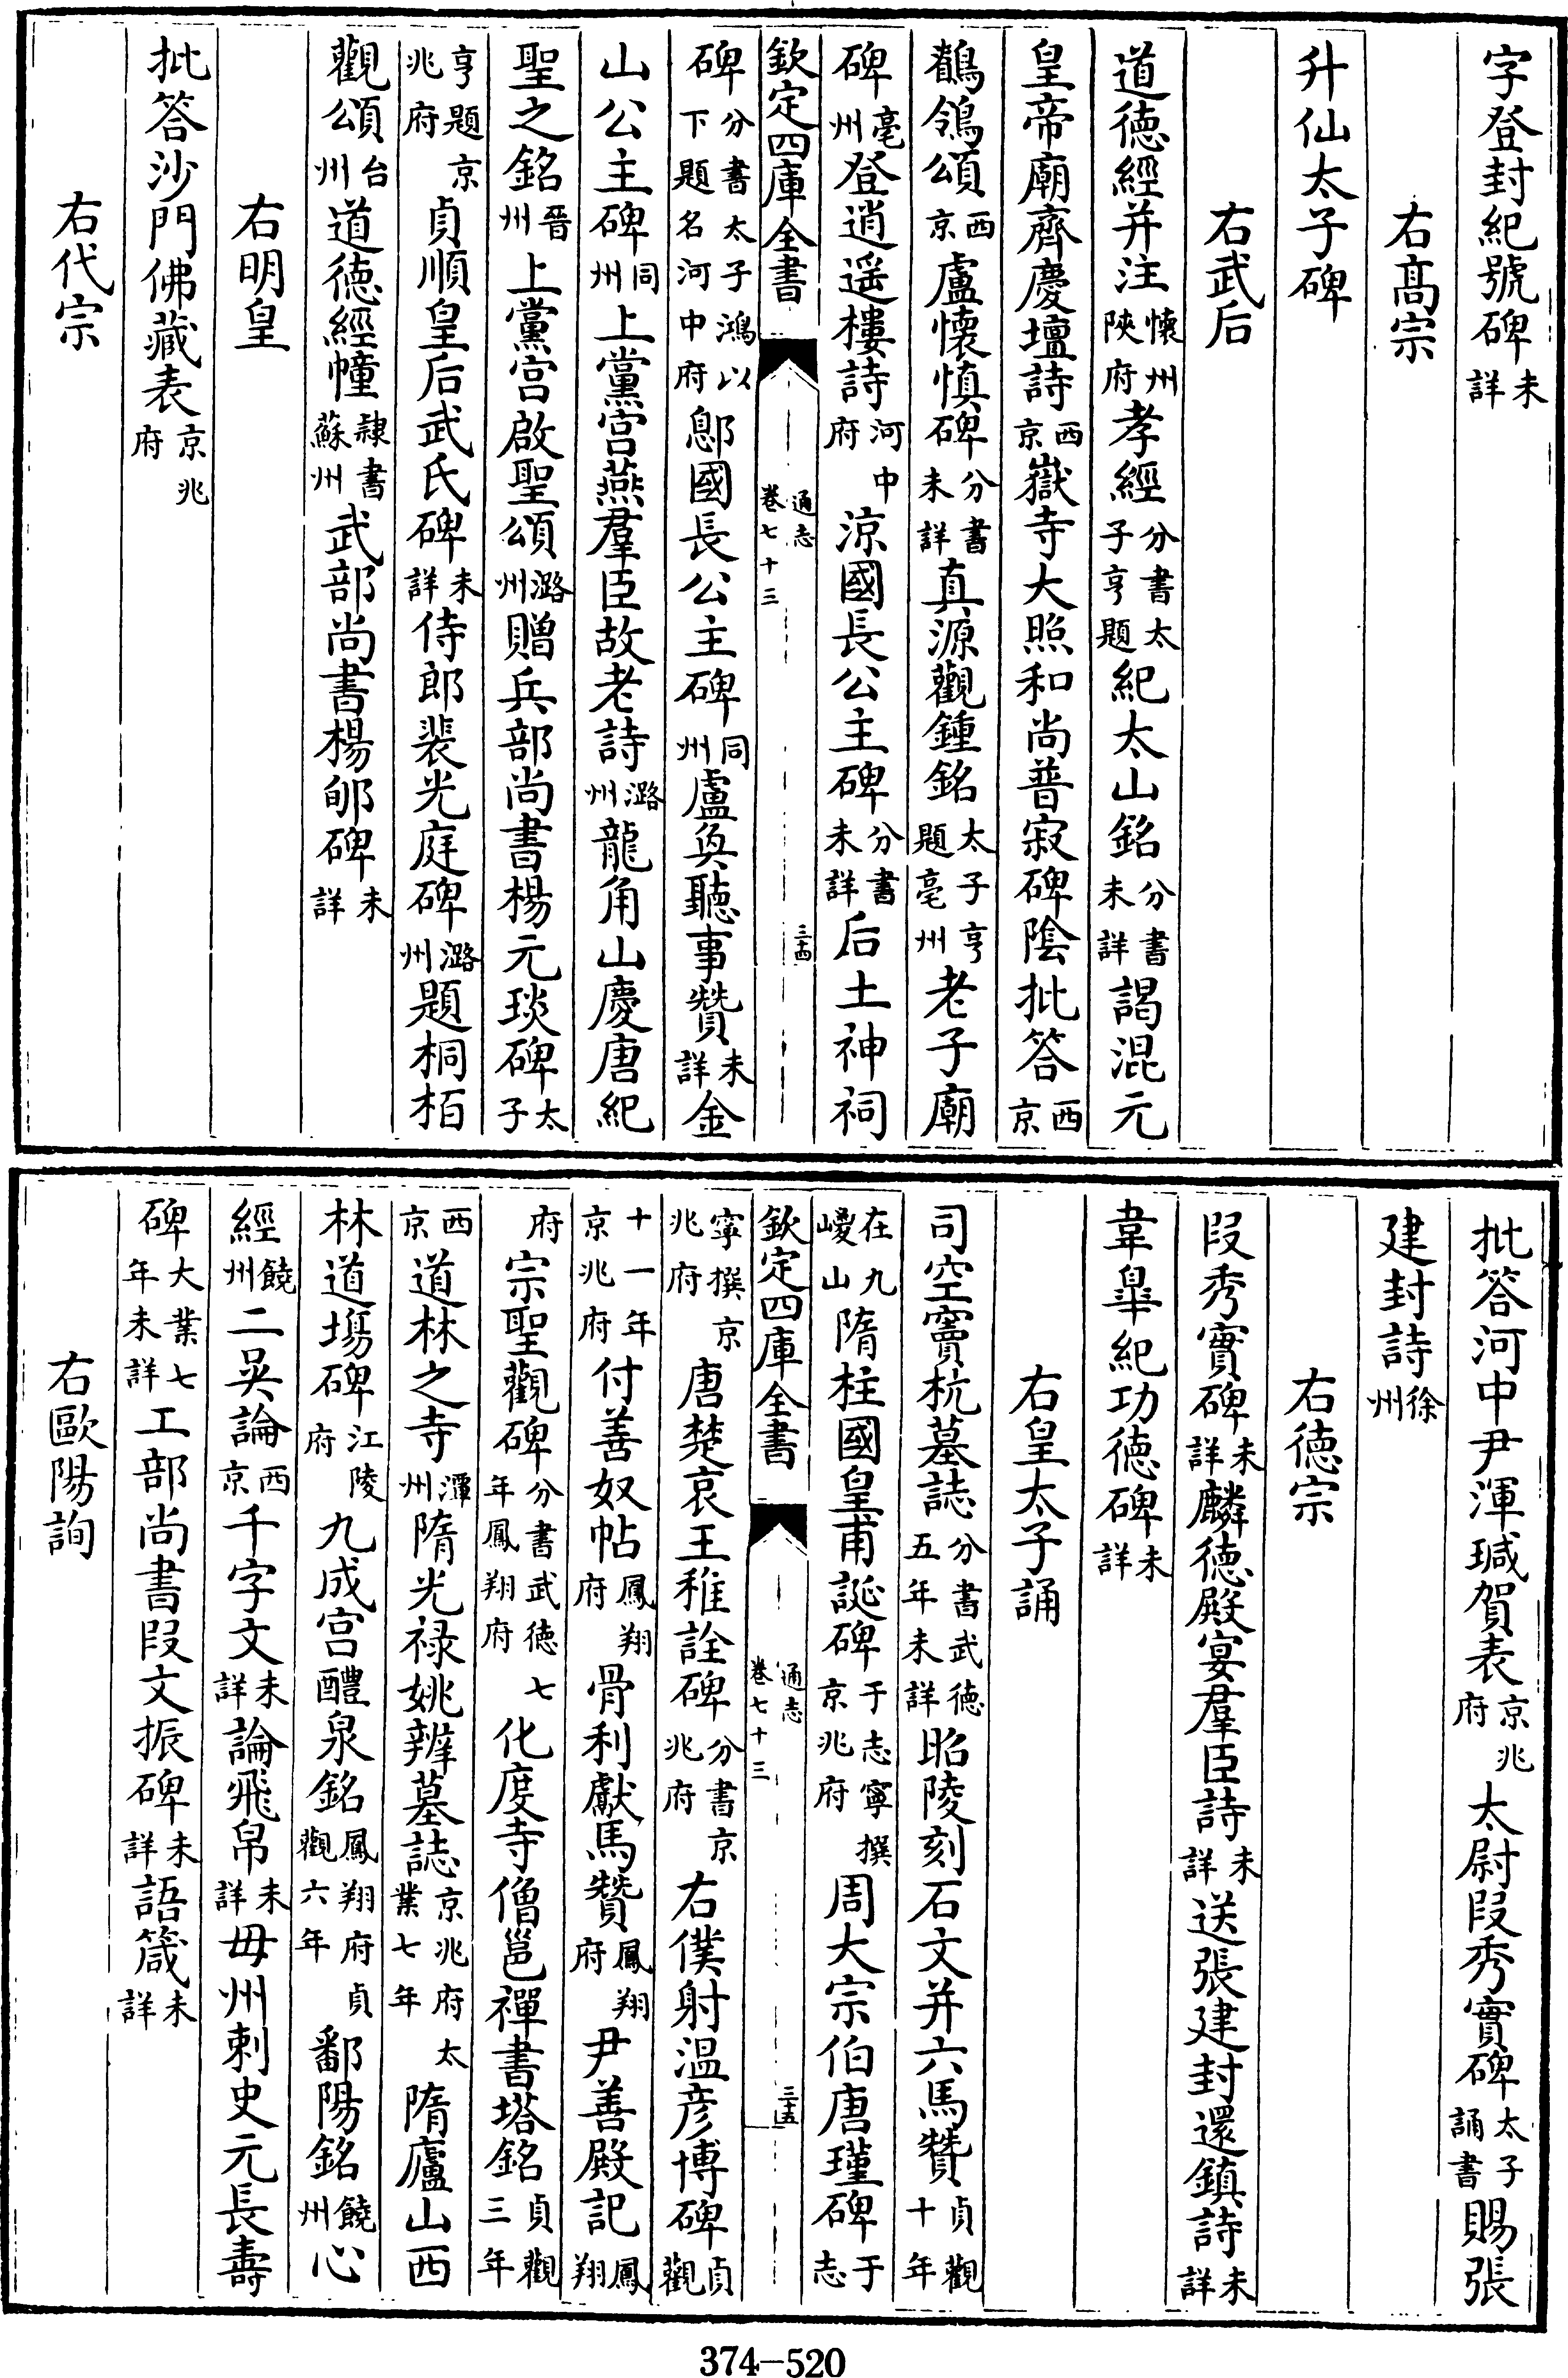 字登封紀號碑未詳
右髙宗
升仙太子碑
右武后
道徳經并注懷州陜府孝經分書太子亨題紀太山銘分書未詳謁混元
皇帝廟齊慶壇詩西京嶽寺大照和尚普寂碑隂批答西京
鶺鴒頌西京盧懐慎碑分書未詳真源觀鍾銘太子亨題亳州老子廟
碑亳州登逍遥樓詩河中府涼國長公主碑分書未詳后土神祠
欽定四庫全書 通志卷七十三 三十四
碑分書太子鴻以下題名河中府鄎國長公主碑同州盧奐聽事贊未詳金
山公主碑同州上黨宫燕羣臣故老詩潞州龍角山慶唐紀
聖之銘晉州上黨宫啟聖頌潞州贈兵部尚書楊元琰碑太子
亨題京兆府貞順皇后武氏碑未詳侍郎裴光庭碑潞州題桐栢
觀頌台州道徳經幢隷書蘇州武部尚書楊郇碑未詳
右明皇
批答沙門佛藏表京兆府
右代宗
批答河中尹渾瑊賀表京兆府太尉段秀實碑太子誦書賜張
建封詩徐州
右徳宗
段秀實碑未詳麟徳殿宴羣臣詩未詳送張建封還鎮詩未詳
韋臯紀功徳碑未詳
右皇太子誦
司空竇杭墓誌分書武徳五年未詳昭陵刻石文并六馬贊貞觀十年
在九嵕山隋柱國皇甫誕碑于志寧撰京兆府周大宗伯唐瑾碑于志
欽定四庫全書 通志卷七十三 三十五
寧撰京兆府唐楚哀王稚詮碑分書京兆府右僕射温彦博碑貞觀
十一年京兆府付善奴帖鳳翔府骨利獻馬贊鳳翔府尹善殿記鳳翔
府宗聖觀碑分書武徳七年鳳翔府化度寺僧邕禪書塔銘貞觀三年
西京道林之寺潭州隋光禄姚辨墓誌京兆府太業七年隋廬山西
林道塲碑江陵府九成宫醴泉銘鳳翔府貞觀六年鄱陽銘饒州心
經饒州二吳論西京千字文未詳論飛帛未詳毋州刺史元長壽
碑大業七年未詳工部尚書段文振碑未詳語箴未詳
右歐陽詢
374-520